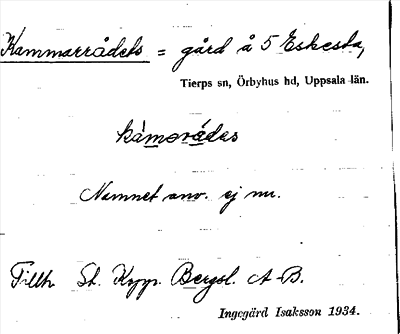 Kammarrådets = gård å 5 Eskesta,
Tierps sn, Örbyhus hd, Uppsala län.
kàmərádəs
Namnet anv. ej nu.
Tillh. St. Kopp. Bergsl. A-B.
Ingegärd Isaksson 1934.